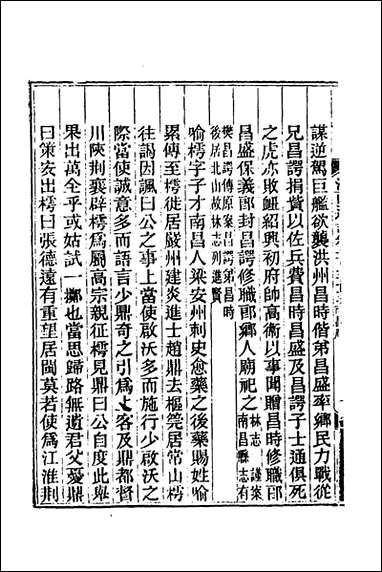 謀逆駕巨艦欲襲洪州昌時偕弟昌盛率鄉民力戰從
兄昌諤捐貲以佐兵費昌時昌盛及昌諤子士通俱死
之虎亦敗衄紹興初府帥高衛以事聞贈昌時修職郎
昌盛保義郎封昌諤修職郎鄉人廟祀之林志 謹案南昌縣志有
樊昌諤傳原案曰諤弟昌時後居北山故林志列進賢
喻樗字子才南昌人梁安州刺史愈藥之後藥賜姓喻
累傳至樗徙居嚴州建炎進士趙鼎去樞筦居常山樗
往謁因諷曰公之事上當使啟沃多而施行少啟沃之
際當使誠意多而語言少鼎奇之引為上客及鼎都督
川陝荆襄辟樗為屬高宗親征樗見鼎曰公自度此舉
果出萬全乎或姑試一擲也當思歸路無遺君父憂鼎
曰策安出樗曰張德遠有重望居閩莫若使為江淮荆